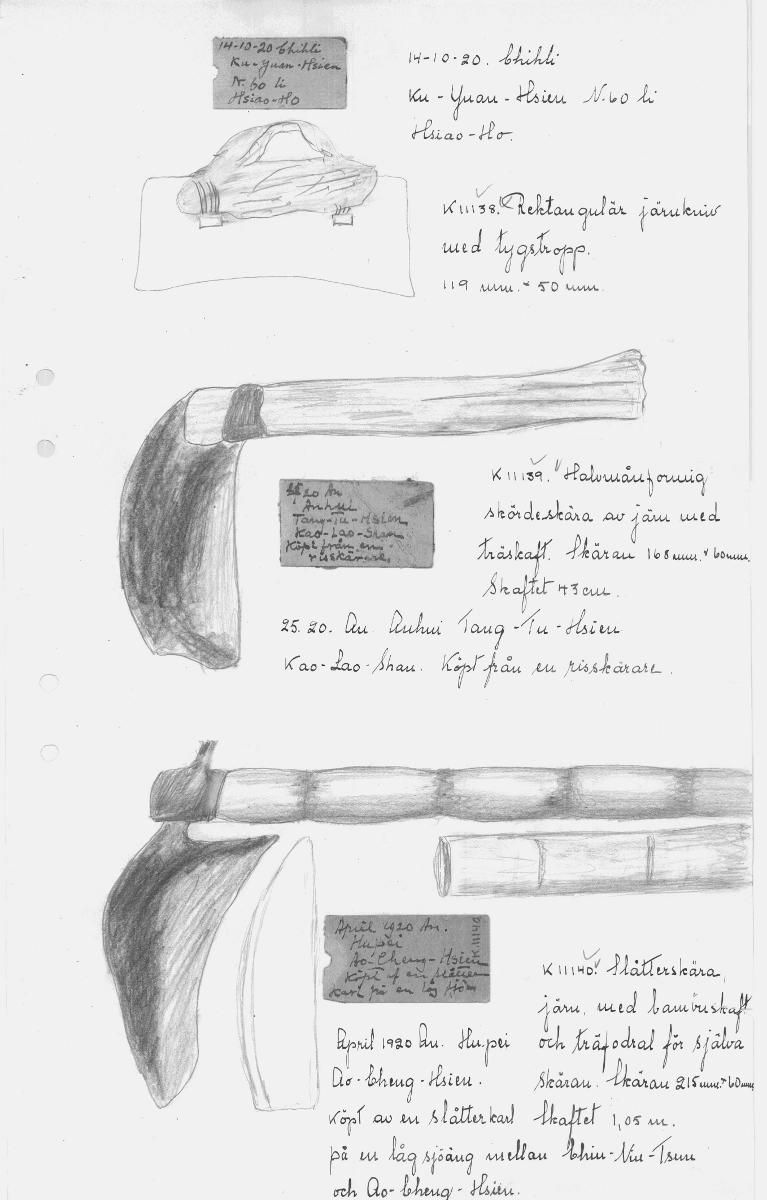 14-10-20 Chihli
Ku-Yuan-Hsien
N. 60 li
Hsiao-Ho
14-10-20. Chihli
Ku-Yuan-Hsien N. 60 li
Hsiao-Ho.
K11138. Rektangulär järnkniv
med tygstropp.
119 mm. × 50 mm.
20 An
Anhui
Tang-Tu-Hsien
Kao-Lao-Shan
Köpt från en
risskärare.
K11139. Halvmånformig
skördeskära av järn med
träskaft. Skäran 168 mm. × 60 mm.
Skaftet 43 cm.
25. 20. An. Anhui Tang-Tu-Hsien
Kao-Lao-Shan. Köpt från en risskärare.
April 1920 An.
Hupei
Ao-Cheng-Hsien
Köpt af en slåtter
karl på en låg
K11140
K11140. Slåtterskära,
järn, med bambuskaft
och träfodral för själva
skäran. Skäran 215 mm. × 60 mm.
Skaftet 1,05 m.
April 1920 An. Hupei
Ao-Cheng-Hsien.
Köpt av en slåtterkarl
på en låg sjöäng mellan Chiu-Niu-Tsun
och Ao-Cheng-Hsien.